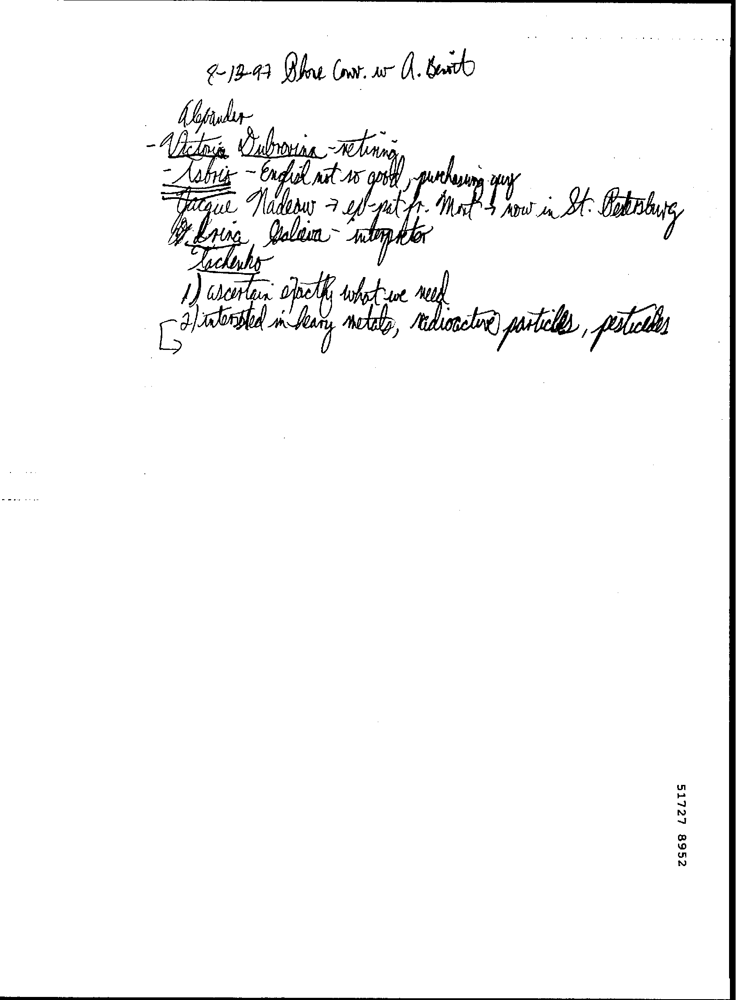 8-13-97 Phone Conv. w A. Benoit
Alexander
- Victoria Dubrovina - retiring
- - English not so good, purchasing guy
Jacque Nadeau → ex-pat fr. Mont → now in St. Petersburg
Irina - interpreter
Tachenko
1) ascertain exactly what we need
2) interested in heavy metals, radioactive particles, pesticides
51727 8952